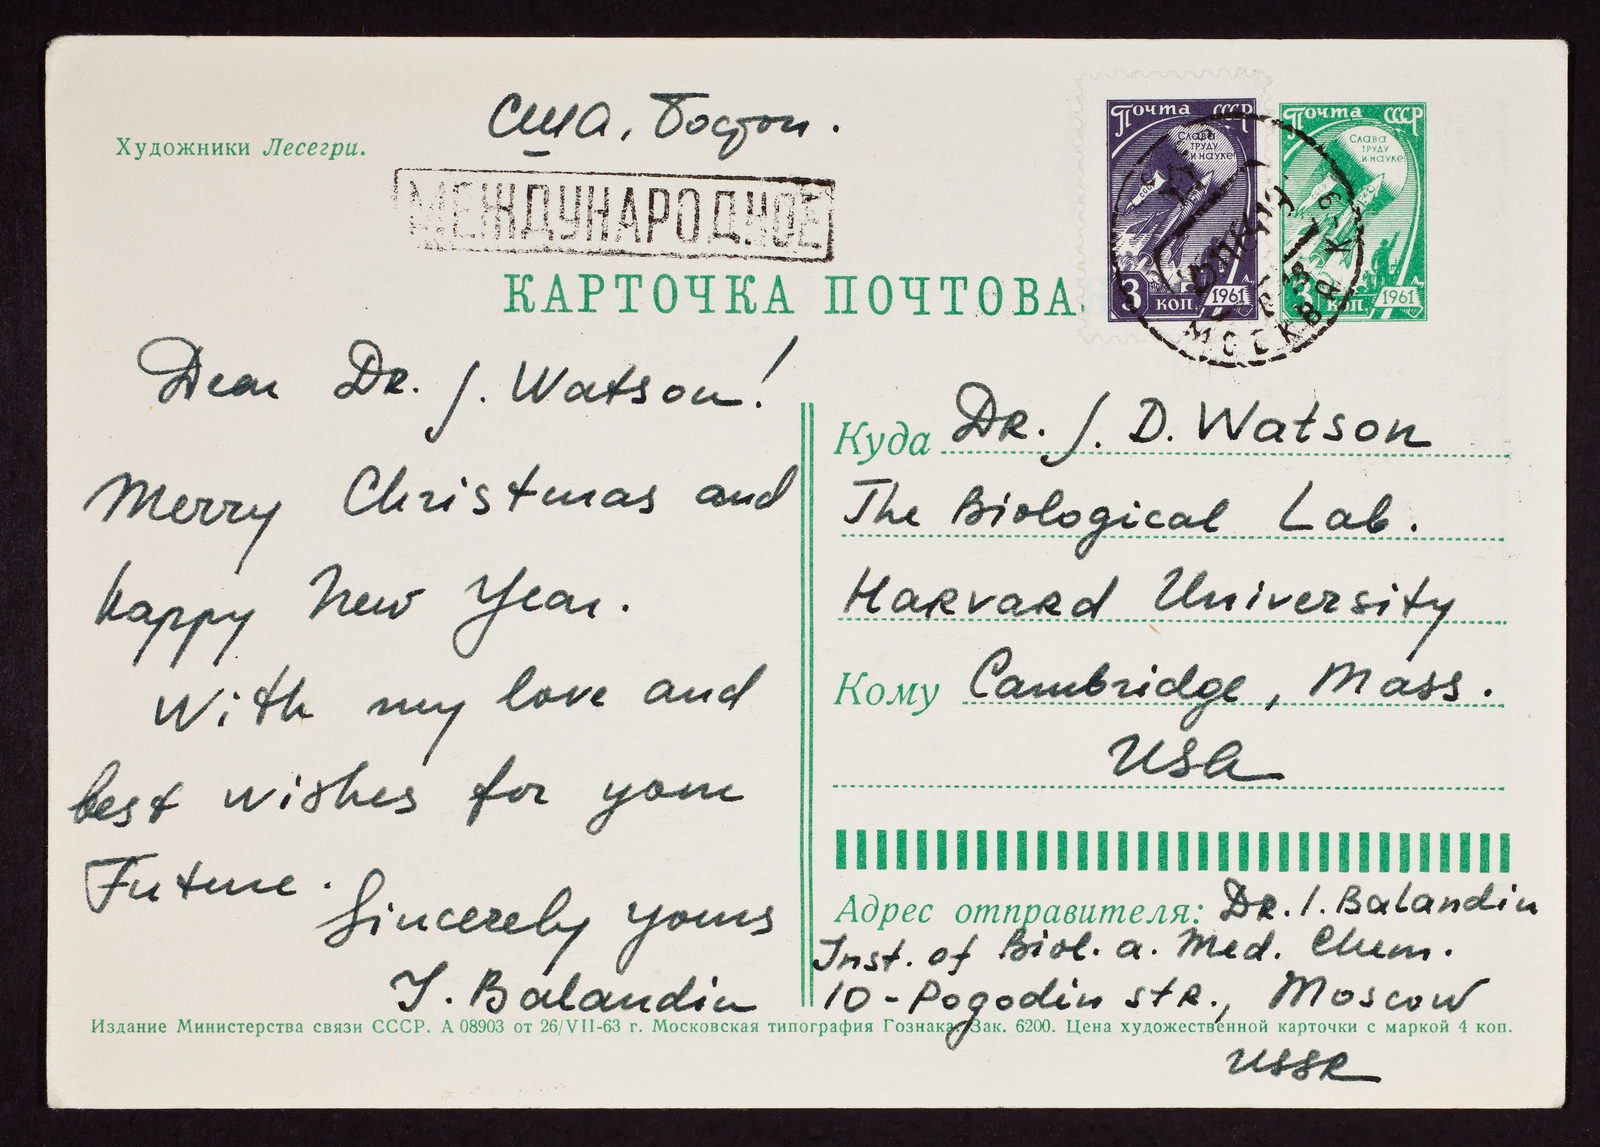 США, Бостон.
Художники Лесегри.
МЕЖДУНАРОДНОЕ
Почта СССР
СЛАВА
ТРУДУ
И НАУКЕ
3 КОП. 1961
Почта СССР
СЛАВА
ТРУДУ
И НАУКЕ
3 КОП. 1961
МОСКВА
КАРТОЧКА ПОЧТОВА
Dear Dr. J. Watson!
Merry Christmas and
happy New Year.
With my love and
best wishes for your
Future.
Sincerely yours
I. Balandin
Куда Dr. J. D. Watson
The Biological Lab.
Harvard University
Кому Cambridge, Mass.
USA
Адрес отправителя: Dr. I. Balandin
Inst. of Biol. a. Med. Chem.
10-Pogodin str., Moscow
USSR
Издание Министерства связи СССР. А 08903 от 26/VII-63 г. Московская типография Гознака. Зак. 6200. Цена художественной карточки с маркой 4 коп.